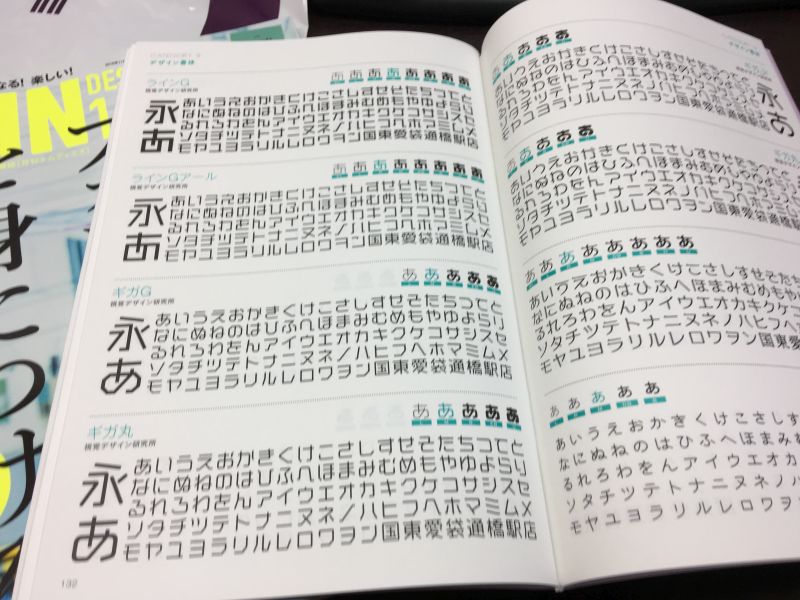 なる! 楽しい!
IN
身につけ
デザイン書体
ラインG
視覚デザイン研究所
永あ
あ あ あ あ あ あ あ あ
あいうえおかきくけこさしすせそたちつてと
なにぬねのはひふへほまみむめもやゆよらり
るれろわをんアイウエオカキクケコサシスセ
ソタチツテトナニヌネノハヒフヘホマミムメ
モヤユヨラリルレロワヲン国東愛袋通橋駅店
ラインGアール
視覚デザイン研究所
永あ
あ あ あ あ あ あ あ あ
あいうえおかきくけこさしすせそたちつてと
なにぬねのはひふへほまみむめもやゆよらり
るれろわをんアイウエオカキクケコサシスセ
ソタチツテトナニヌネノハヒフヘホマミムメ
モヤユヨラリルレロワヲン国東愛袋通橋駅店
ギガG
視覚デザイン研究所
永あ
あ あ あ あ あ
あいうえおかきくけこさしすせそたちつてと
なにぬねのはひふへほまみむめもやゆよらり
るれろわをんアイウエオカキクケコサシスセ
ソタチツテトナニヌネノハヒフヘホマミムメ
モヤユヨラリルレロワヲン国東愛袋通橋駅店
ギガ丸
視覚デザイン研究所
永あ
あ あ あ あ あ
あいうえおかきくけこさしすせそたちつてと
なにぬねのはひふへほまみむめもやゆよらり
るれろわをんアイウエオカキクケコサシスセ
ソタチツテトナニヌネノハヒフヘホマミムメ
モヤユヨラリルレロワヲン国東愛袋通橋駅店
132
あ あ あ あ あ
あいうえおかきくけこさしすせそたちつてと
なにぬねのはひふへほまみむめもやゆよらり
るれろわをんアイウエオカキクケコサシスセ
ソタチツテトナニヌネノハヒフヘホマミムメ
モヤユヨラリルレロワヲン国東愛袋通橋駅店
永あ
あ あ あ あ あ
あいうえおかきくけこさしすせそたちつて
なにぬねのはひふへほまみむめもやゆよら
るれろわをんアイウエオカキクケコサシス
ソタチツテトナニヌネノハヒフヘホマミム
モヤユヨラリルレロワヲン国東愛袋通橋駅店
あ あ あ あ あ あ あ あ
あいうえおかきくけこさしすせそたち
なにぬねのはひふへほまみむめもやゆ
るれろわをんアイウエオカキクケ
ソタチツテトナニヌネノハヒフヘ
モヤユヨラリルレロワヲン国東愛袋
あ あ あ あ あ
あいうえおかきくけこさしす
なにぬねのはひふへほまみむ
るれろわをんアイウエオカキ
ソタチツテトナニヌネノハ
モヤユヨラリルレロワヲン